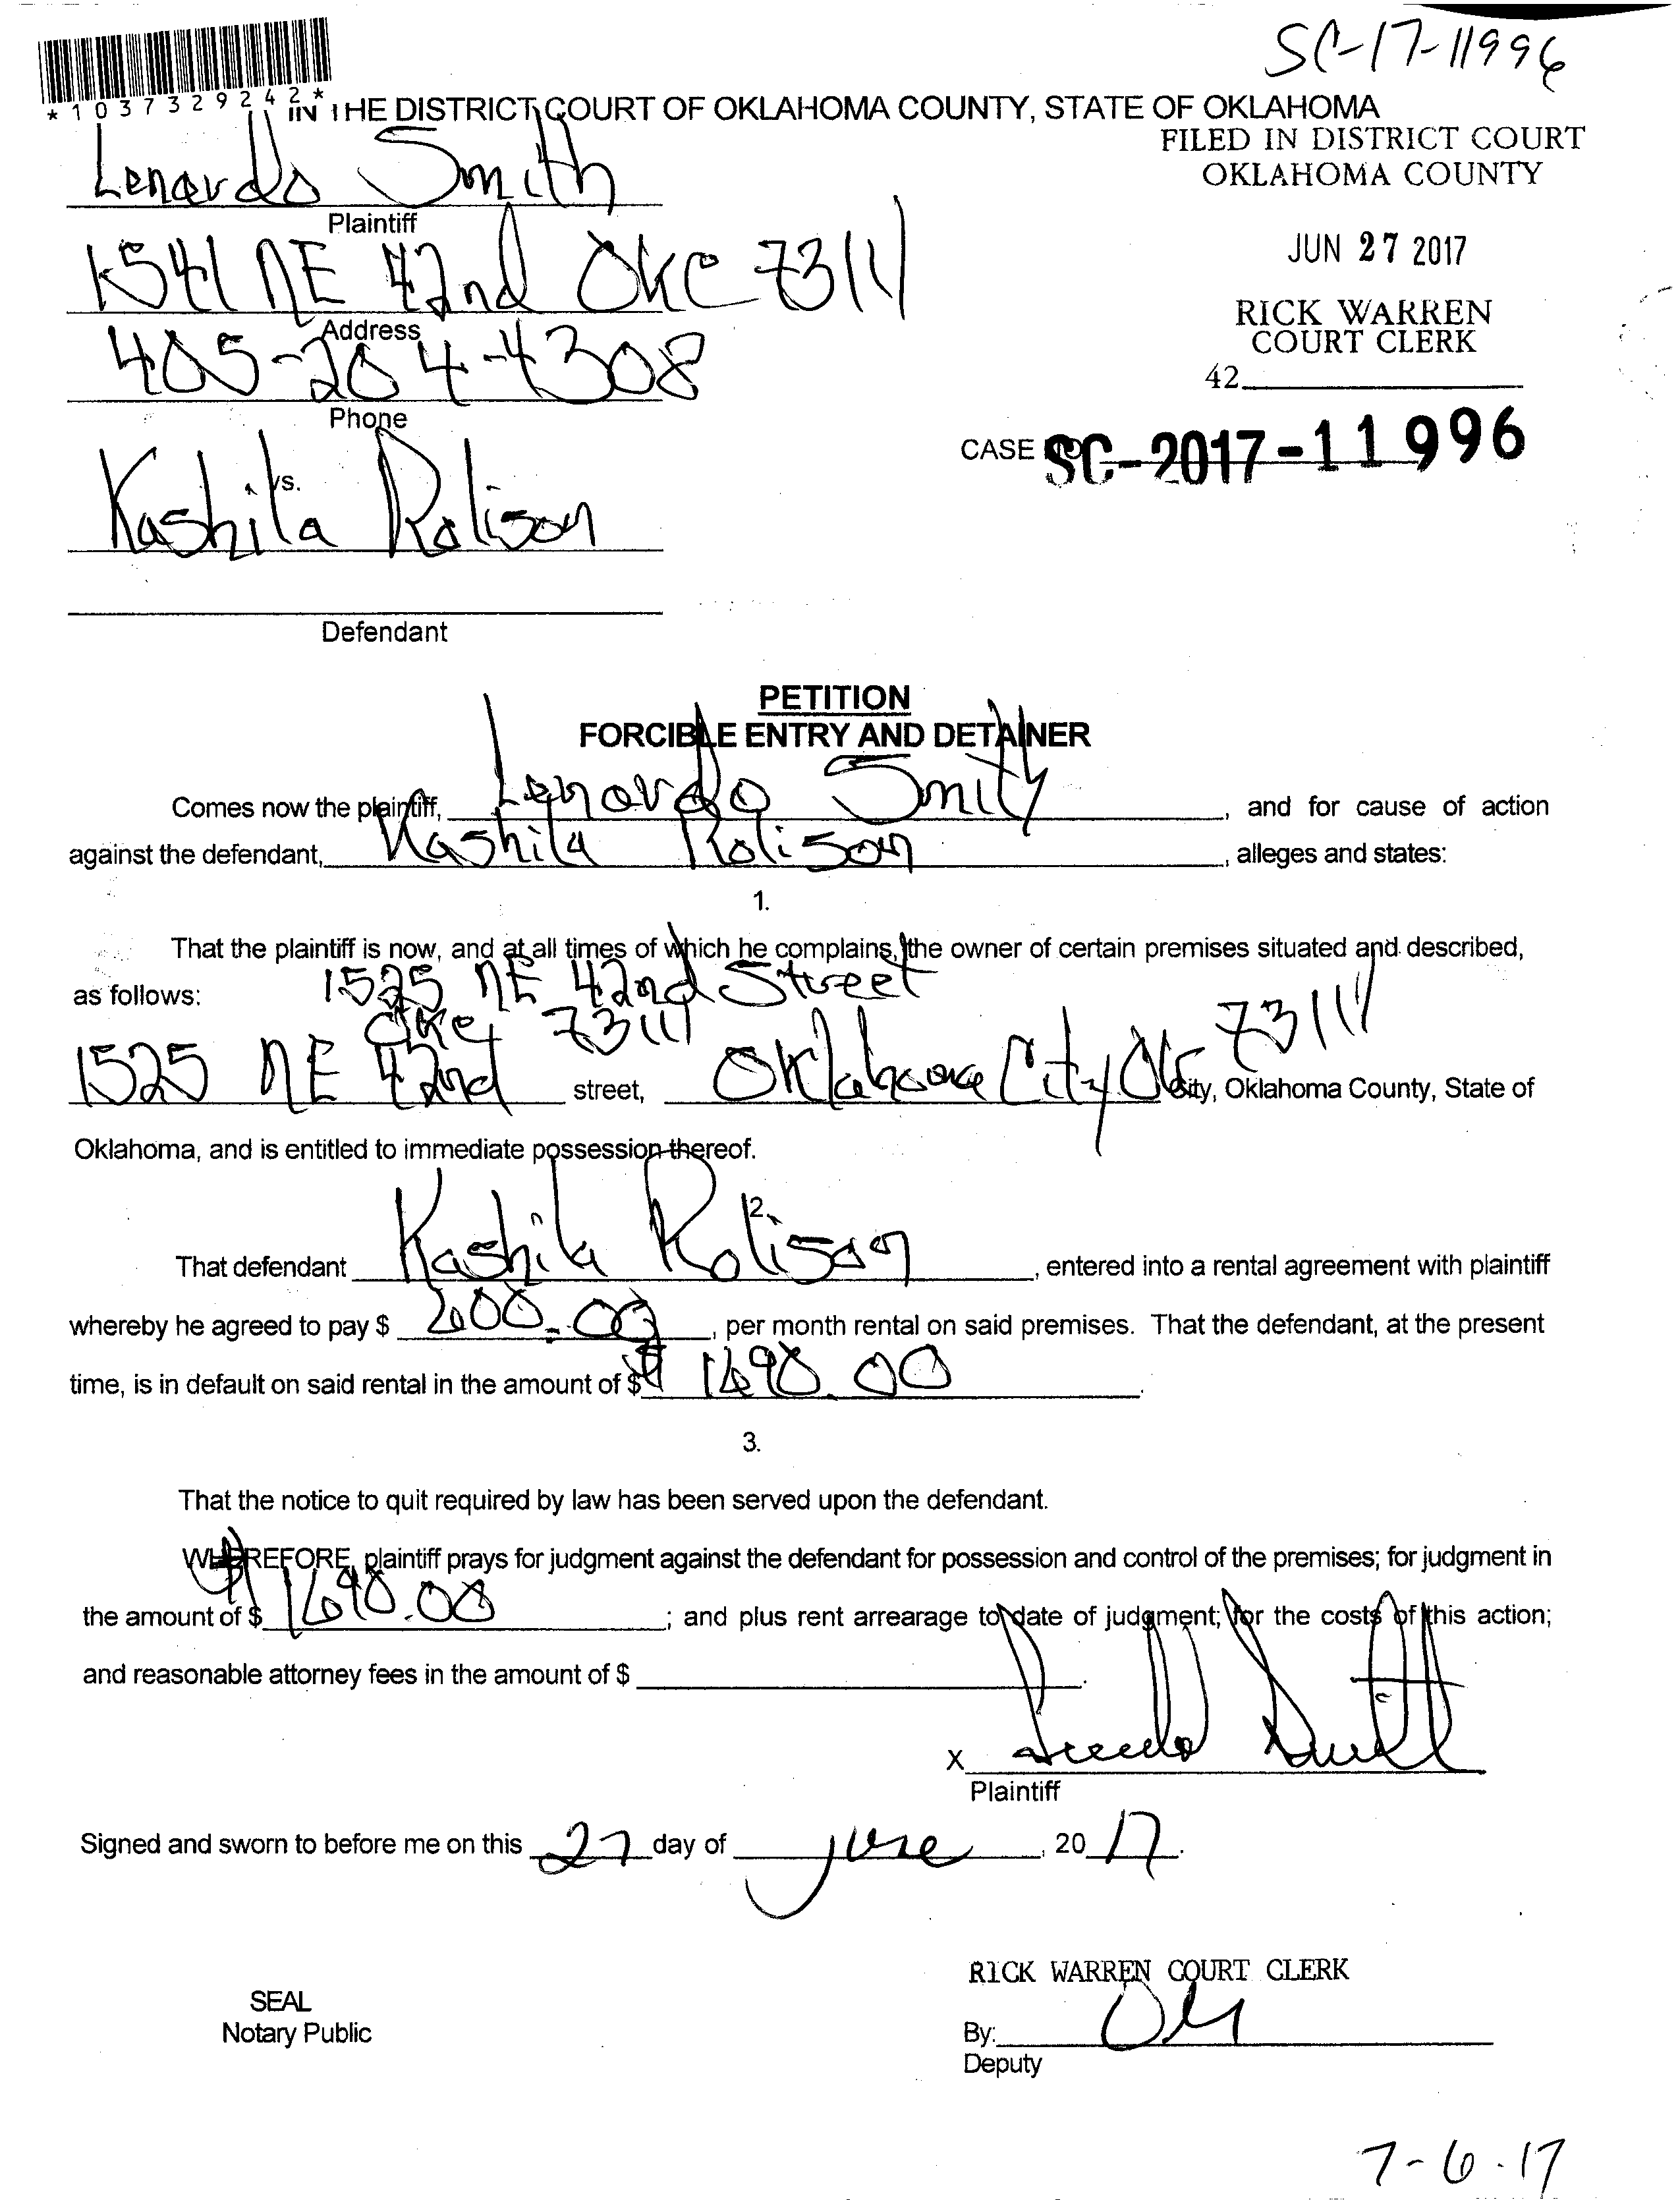 SC-17-11996
*1037329242*
IN THE DISTRICT COURT OF OKLAHOMA COUNTY, STATE OF OKLAHOMA
FILED IN DISTRICT COURT
OKLAHOMA COUNTY
Lenardo Smith
Plaintiff
JUN 27 2017
1541 NE 42nd OKC 73111
Address
RICK WARREN
COURT CLERK
405-204-4308
42
Phone
CASE NO SC-2017-11996
vs.
Kashila Rolison
Defendant
PETITION
FORCIBLE ENTRY AND DETAINER
Comes now the plaintiff, Lenardo Smith, and for cause of action
against the defendant, Kashila Rolison, alleges and states:
1.
That the plaintiff is now, and at all times of which he complains, the owner of certain premises situated and described,
as follows: 1525 NE 42nd Street
OKC 73111
1525 NE 42nd street, Oklahoma City OK 73111 City, Oklahoma County, State of
Oklahoma, and is entitled to immediate possession thereof.
2.
That defendant Kashila Rolison, entered into a rental agreement with plaintiff
whereby he agreed to pay $ 600.00, per month rental on said premises. That the defendant, at the present
time, is in default on said rental in the amount of $ $ 1690.00.
3.
That the notice to quit required by law has been served upon the defendant.
WHEREFORE, plaintiff prays for judgment against the defendant for possession and control of the premises; for judgment in
the amount of $ $1690.00; and plus rent arrearage to date of judgment; for the costs of this action;
and reasonable attorney fees in the amount of $
X
Plaintiff
Signed and sworn to before me on this 27 day of June, 2017.
RICK WARREN COURT CLERK
SEAL
Notary Public
By:
Deputy
7-6-17